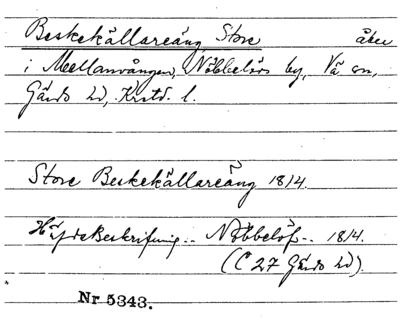 Beskekällareäng Store åker
i Mellanvången, Nöbbelövs by, Vä sn,
Gärds hd, Krstd. l.
Store Beskekällareäng 1814.
Häfdebeskrifning.. Nöbbelöf.. 1814.
(C 27 Gärds hd).
Nr 5343.